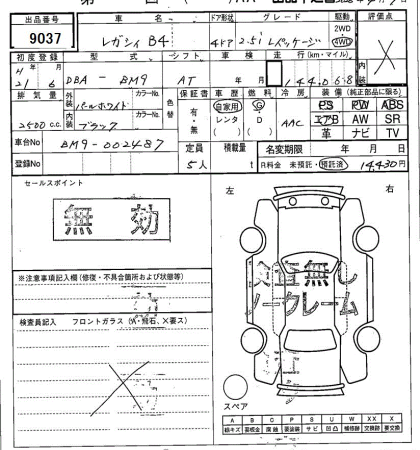 出品番号 車名 ドア形状 グレード 駆動 評価点
9037 レガシィ B4 4ドア 2.5i Lパッケージ 2WD 4WD
初度登録 型式 シフト 車検 走行(km・マイル)
H 21年 6月 DBA-BM9 AT 年 月 144,068
排気量 外装 カラーNo. 色替 保証書 車歴 燃料 冷房 装備(純正部品に限る)
2500 c.c. パールホワイト 有・無 自家用 G AAC PS PW ABS
内装 カラーNo. レンタ D エアB AW SR
ブラック ( ) ( ) 革 ナビ TV
車台No BM9-002487 定員 積載量 名変期限 年 月 日
登録No 5人 t R料金 未預託・預託済 14,430円
セールスポイント 左 右
無効
検査無し
ノークレーム
※注意事項記入欄(修復・不具合箇所および状態等)
検査員記入 フロントガラス(A・飛石、X要ス)
スペア
A B C P S U W XX X
線キズ 要板金 腐蝕 要塗装 サビ 凹凸 補修跡 交換跡 要交換